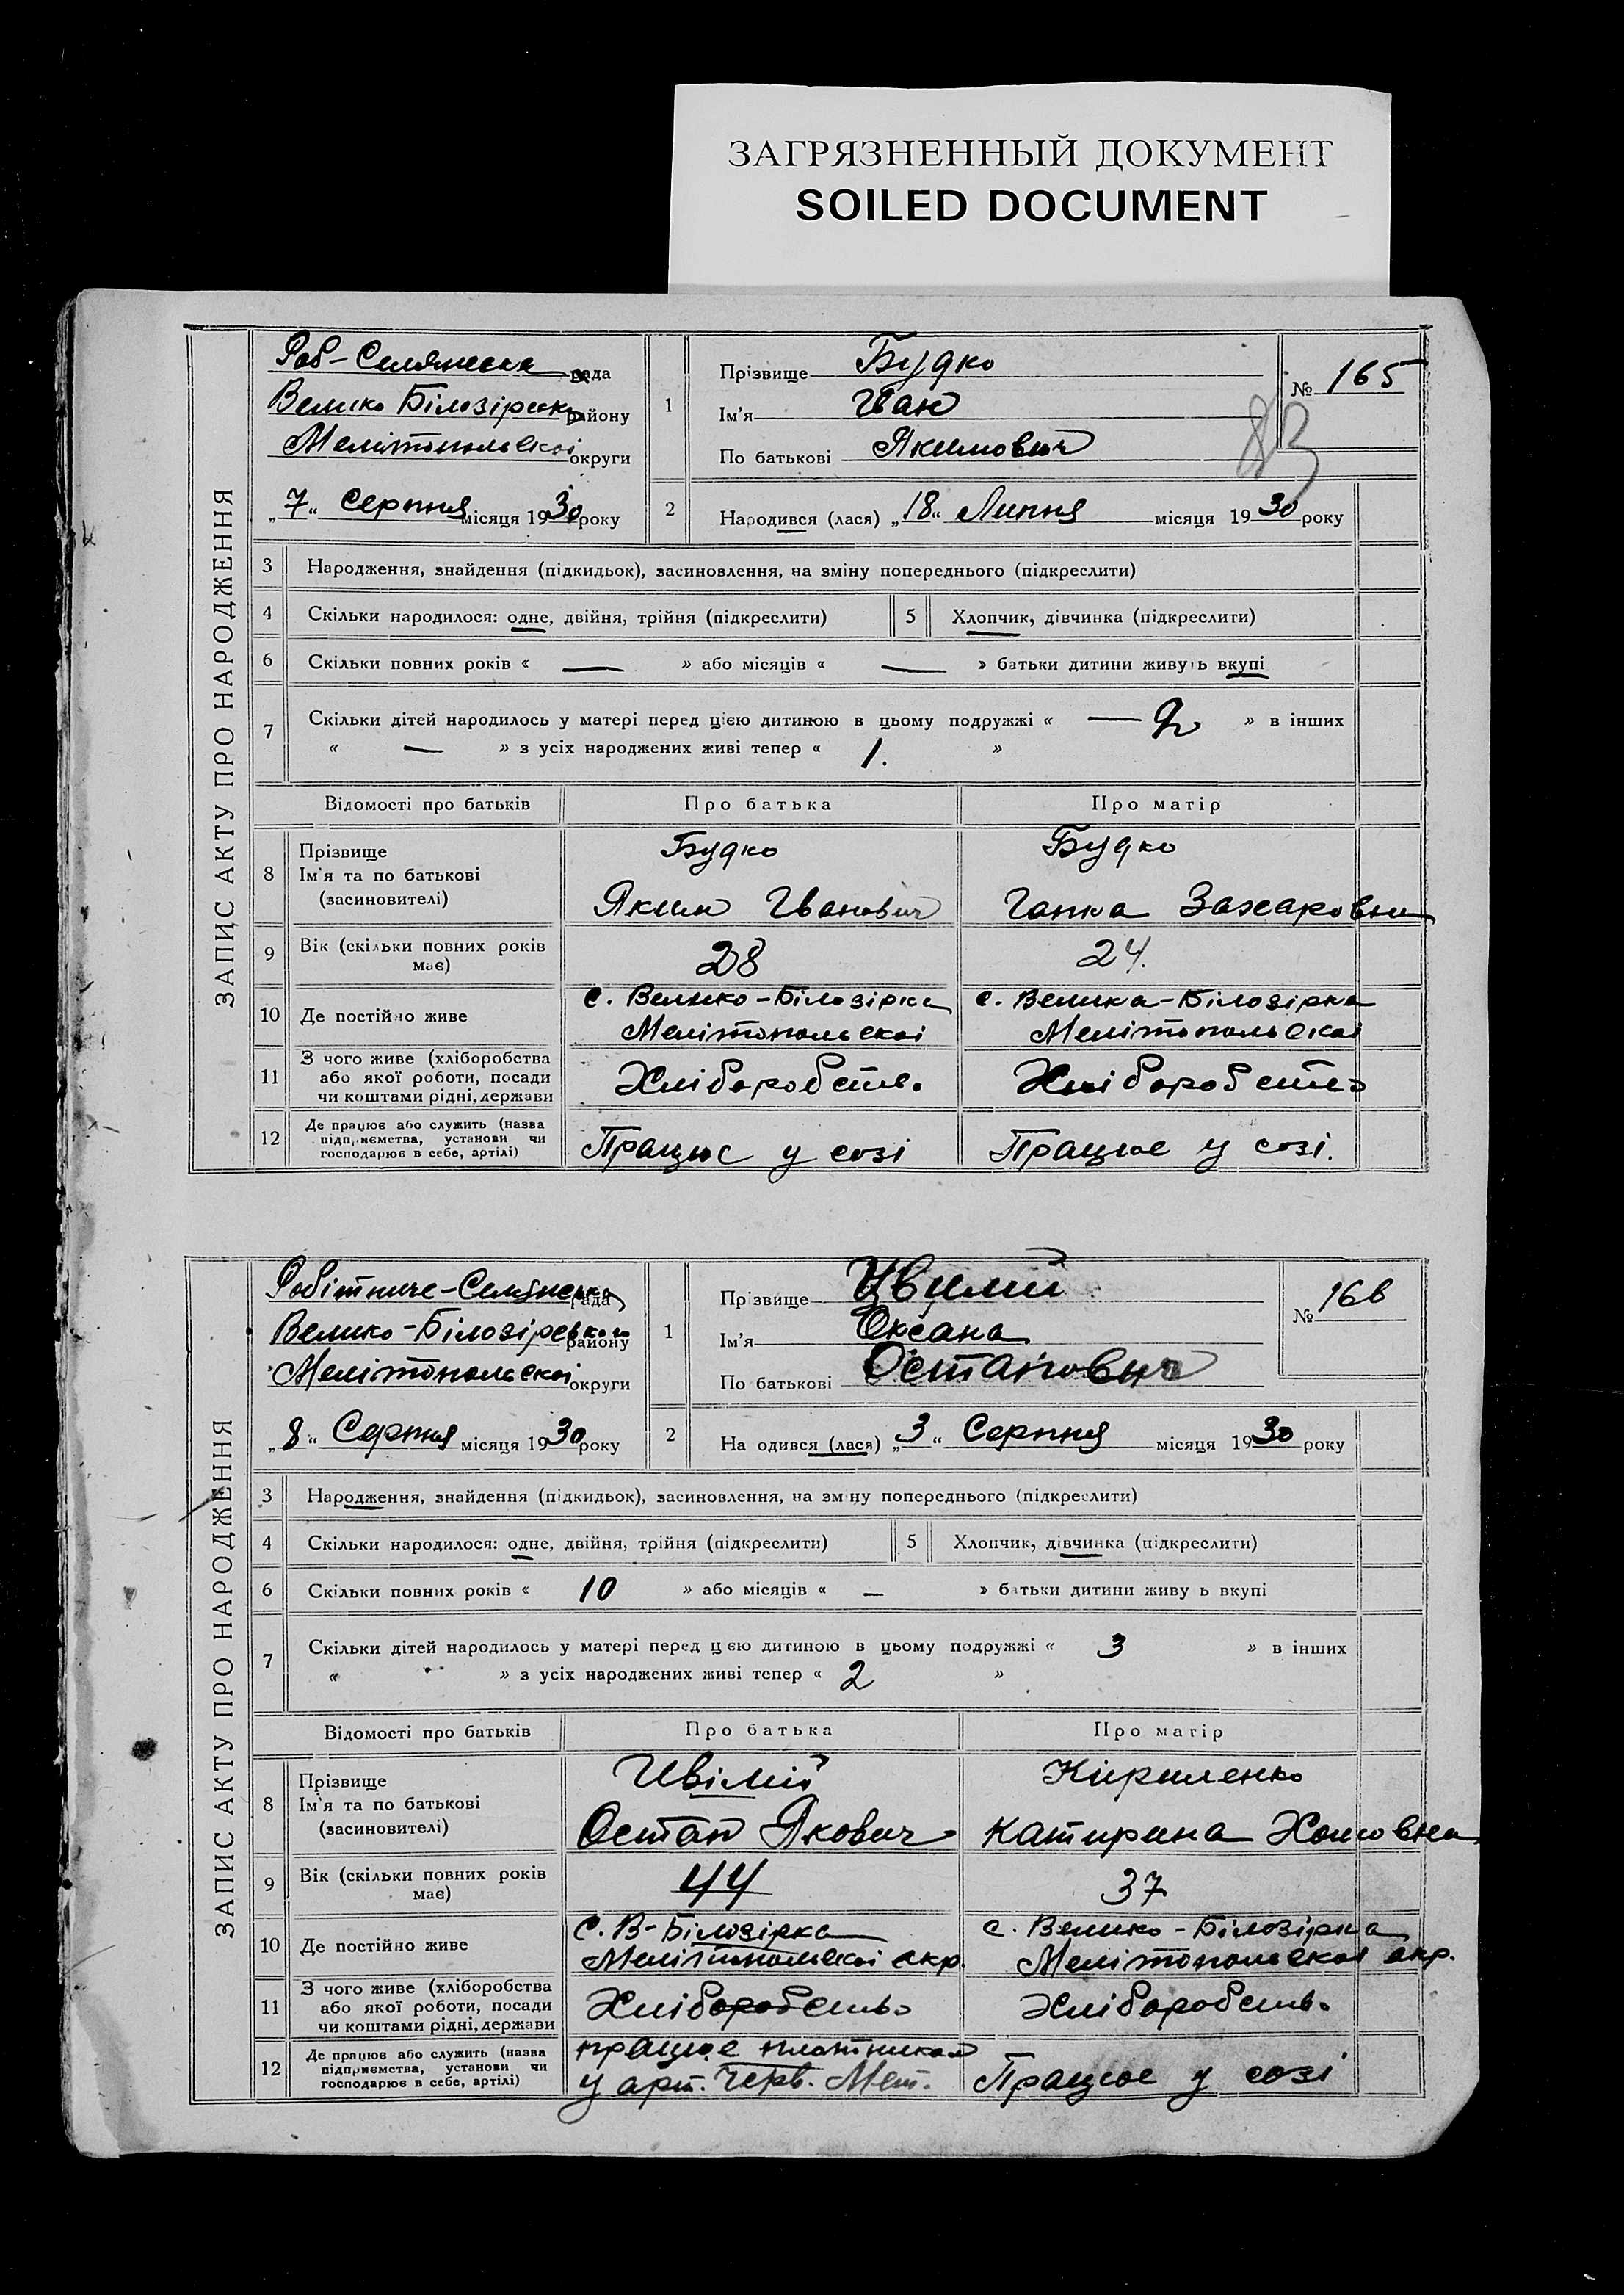 ЗАГРЯЗНЕННЫЙ ДОКУМЕНТ
SOILED DOCUMENT
ЗАПИС АКТУ ПРО НАРОДЖЕННЯ
Роб-Селянська рада
Велико Білозірськ району
Мелітопольскої округи
„7“ Серпня місяця 1930 року
1
Прізвище Будко
Ім'я Іван
По батькові Якимович
№ 165
2
Народився (лася) „18“ Липня місяця 1930 року
3 Народження, знайдення (підкидьок), засиновлення, на зміну попереднього (підкреслити)
4 Скільки народилося: одне, двійня, трійня (підкреслити) 5 Хлопчик, дівчинка (підкреслити)
6 Скільки повних років « — » або місяців « — » батьки дитини живуть вкупі
7 Скільки дітей народилось у матері перед цією дитиною в цьому подружжі « — 2 » в інших
« — » з усіх народжених живі тепер « 1. »
Відомості про батьків Про батька Про матір
8 Прізвище Ім'я та по батькові (засиновителі)
Будко Будко
Яким Іванович Ганка Захаровна
9 Вік (скільки повних років має) 28 24.
10 Де постійно живе
с. Велико-Білозірка с. Велика-Білозірка
Мелітопольскоі Мелітопольскоі
11 З чого живе (хліборобства або якої роботи, посади чи коштами рідні, держави
Хліборобств. Хліборобств
12 Де працює або служить (назва підприємства, установи чи господарює в себе, артілі)
Працює у созі Працює у созі.
ЗАПИС АКТУ ПРО НАРОДЖЕННЯ
Робітниче-Селянська рада
Велико-Білозірського району
Мелітопольскоі округи
„8“ Серпня місяця 1930 року
1
Прізвище Цвилий
Ім'я Оксана
По батькові Остапович
№ 166
2
На одився (лася) „3“ Серпня місяця 1930 року
3 Народження, знайдення (підкидьок), засиновлення, на зм ну попереднього (підкреслити)
4 Скільки народилося: одне, двійня, трійня (підкреслити) 5 Хлопчик, дівчинка (підкреслити)
6 Скільки повних років « 10 » або місяців « — » батьки дитини живу ь вкупі
7 Скільки дітей народилось у матері перед ц єю дитиною в цьому подружжі « 3 » в інших
« » з усіх народжених живі тепер « 2 »
Відомості про батьків Про батька Про матір
8 Прізвище Ім'я та по батькові (засиновителі)
Цвілий Кириленко
Остап Якович Катирина Хомовна
9 Вік (скільки повних років має) 44 37
10 Де постійно живе
С. В-Білозірка с. Велико-Білозірка
Мелітопольскоі окр. Мелітопольскоі окр.
11 З чого живе (хліборобства або якої роботи, посади чи коштами рідні, держави
Хліборобств Хліборобств.
12 Де працює або служить (назва підприємства, установи чи господарює в себе, артілі)
працює плотником
у арт. Черв. Мет. Працює у созі